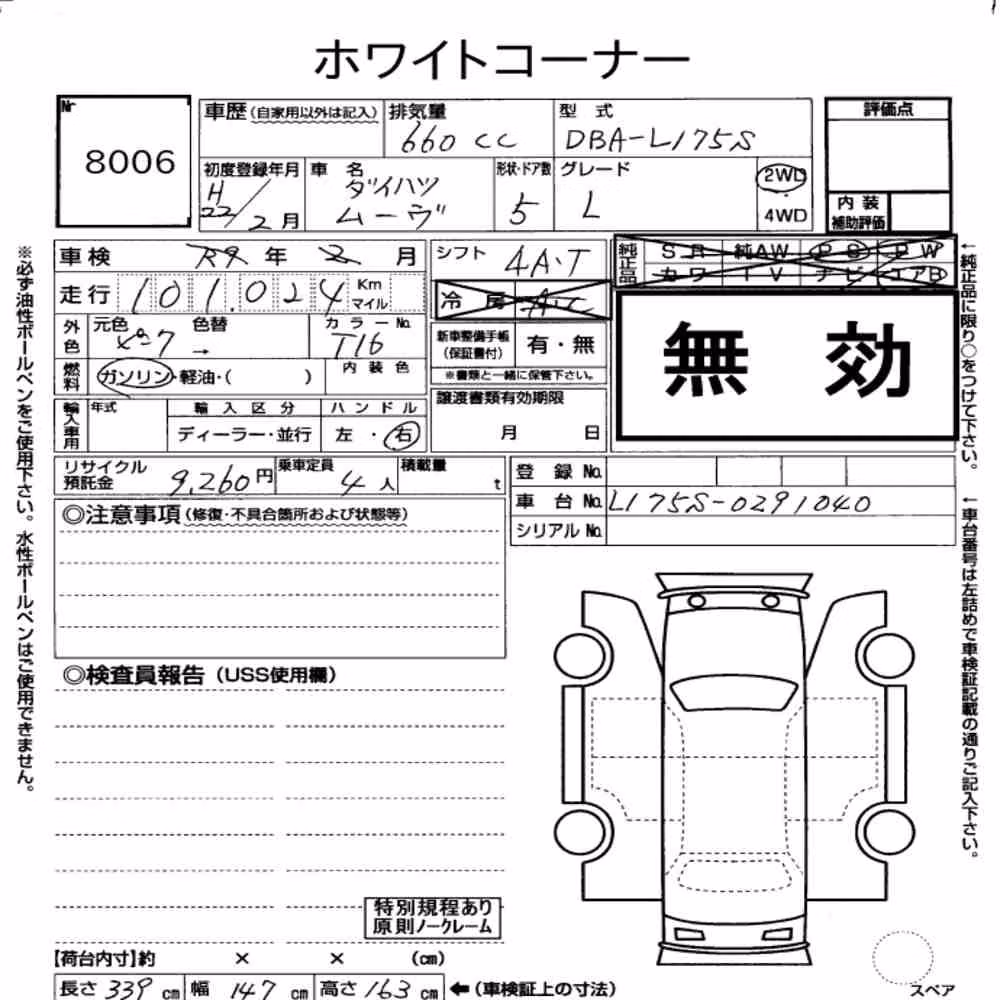 ホワイトコーナー
Nr
8006
車歴(自家用以外は記入)
排気量
660 cc
型 式
DBA-L175S
評価点
初度登録年月
H
22/2月
車 名
ダイハツ
ムーヴ
形状・ドア数
5
グレード
L
2WD
4WD
内 装
補助評価
車検 R9 年 2 月
シフト 4A・T
純正品
S R 純AW P S P W
カワ T V ナビ エアB
走行 101.024 Km
マイル
冷 房 A・C
外色
元色
色替
→
カラーNo.
T16
新車整備手帳
(保証書付)
有・無
無 効
燃料
ガソリン・軽油・( )
内 装 色
※書類と一緒に保管下さい。
輸入車用
年式
輸 入 区 分
ハ ン ド ル
譲渡書類有効期限
ディーラー・並行
左 ・ 右
月 日
リサイクル
預託金
9,260円
乗車定員
4 人
積載量
t
登 録 No.
車 台 No. L175S-0291040
シリアル No.
◎注意事項(修復・不具合箇所および状態等)
◎検査員報告(USS使用欄)
特別規程あり
原則ノークレーム
【荷台内寸】約 × × (cm)
長さ 339 cm 幅 147 cm 高さ 163 cm ←(車検証上の寸法)
スペア
※必ず油性ボールペンをご使用下さい。水性ボールペンはご使用できません。
←純正品に限り○をつけて下さい。
←車台番号は左詰めで車検証記載の通りご記入下さい。